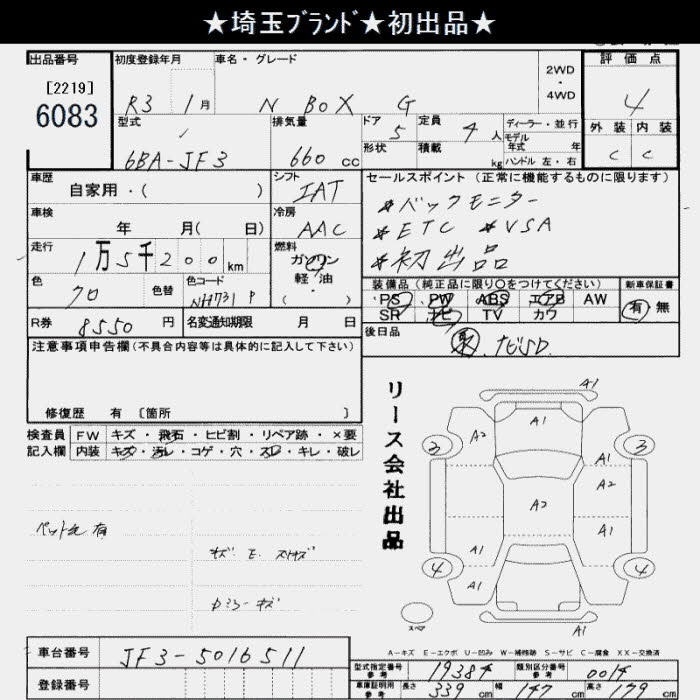 ★埼玉ﾌﾞﾗﾝﾄﾞ★初出品★
出品番号
[2219]
6083
初度登録年月
R3 1月
車名・グレード
N BOX G
2WD
・
4WD
評価点
4
外装 内装
C C
型式
6BA-JF3
排気量
660 cc
ドア
5
形状
定員
4 人
積載
kg
ディーラー・並行
モデル
年式 年
ハンドル 左・右
車歴
自家用・( )
シフト
IAT
車検
年 月( 日)
冷房
AAC
走行
1万5千200km
燃料
ガソリン
軽・油
( )
色
クロ
色替
色コード
NH731P
R券 8550円
名変通知期限 月 日
セールスポイント (正常に機能するものに限ります)
*バックモニター
*ETC *VSA
*初出品
装備品(純正品に限り○をつけてください)
PS PW ABS エアB AW
SR ナビ TV カワ
新車保証書
有 無
後日品
取, ナビSD.
注意事項申告欄(不具合内容等は具体的に記入して下さい)
修復歴 有 〔箇所 〕
検査員 FW キズ・飛石・ヒビ割・リペア跡・×要
記入欄 内装 キズ・汚レ・コゲ・穴・スレ・キレ・破レ
ペット毛 有
キズ E.
ドミラーキズ
リース会社出品
A1
A1
A2
3
3
A1
A2
A2
A1
A1
4
4
A1
A1
スペア
A-キズ E-エクボ U-凹み W-補修跡 S-サビ C-腐食 XX-交換済
車台番号 JF3-5016511
登録番号
型式指定番号
参考
19384
類別区分番号
参考
0014
車庫証明用
参考
長さ 339 cm 幅 147 cm 高さ 179 cm